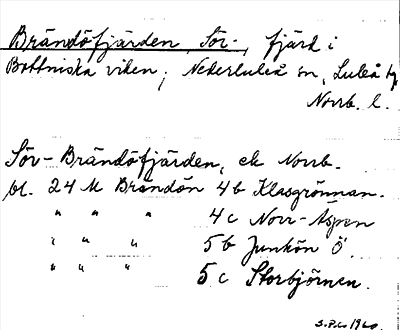 Brändöfjärden, Sör-, fjärd i
Bottniska viken, Nederluleå sn, Luleå
Norrb. l.
Sör-Brändöfjärden, ek Norrb.
bl. 24 M Brändön 4b Klasgrönnan.
" " " 4c Norr-Äspen
" " " 5b Junkön Ö.
" " " 5c Storbjörnen.
1960